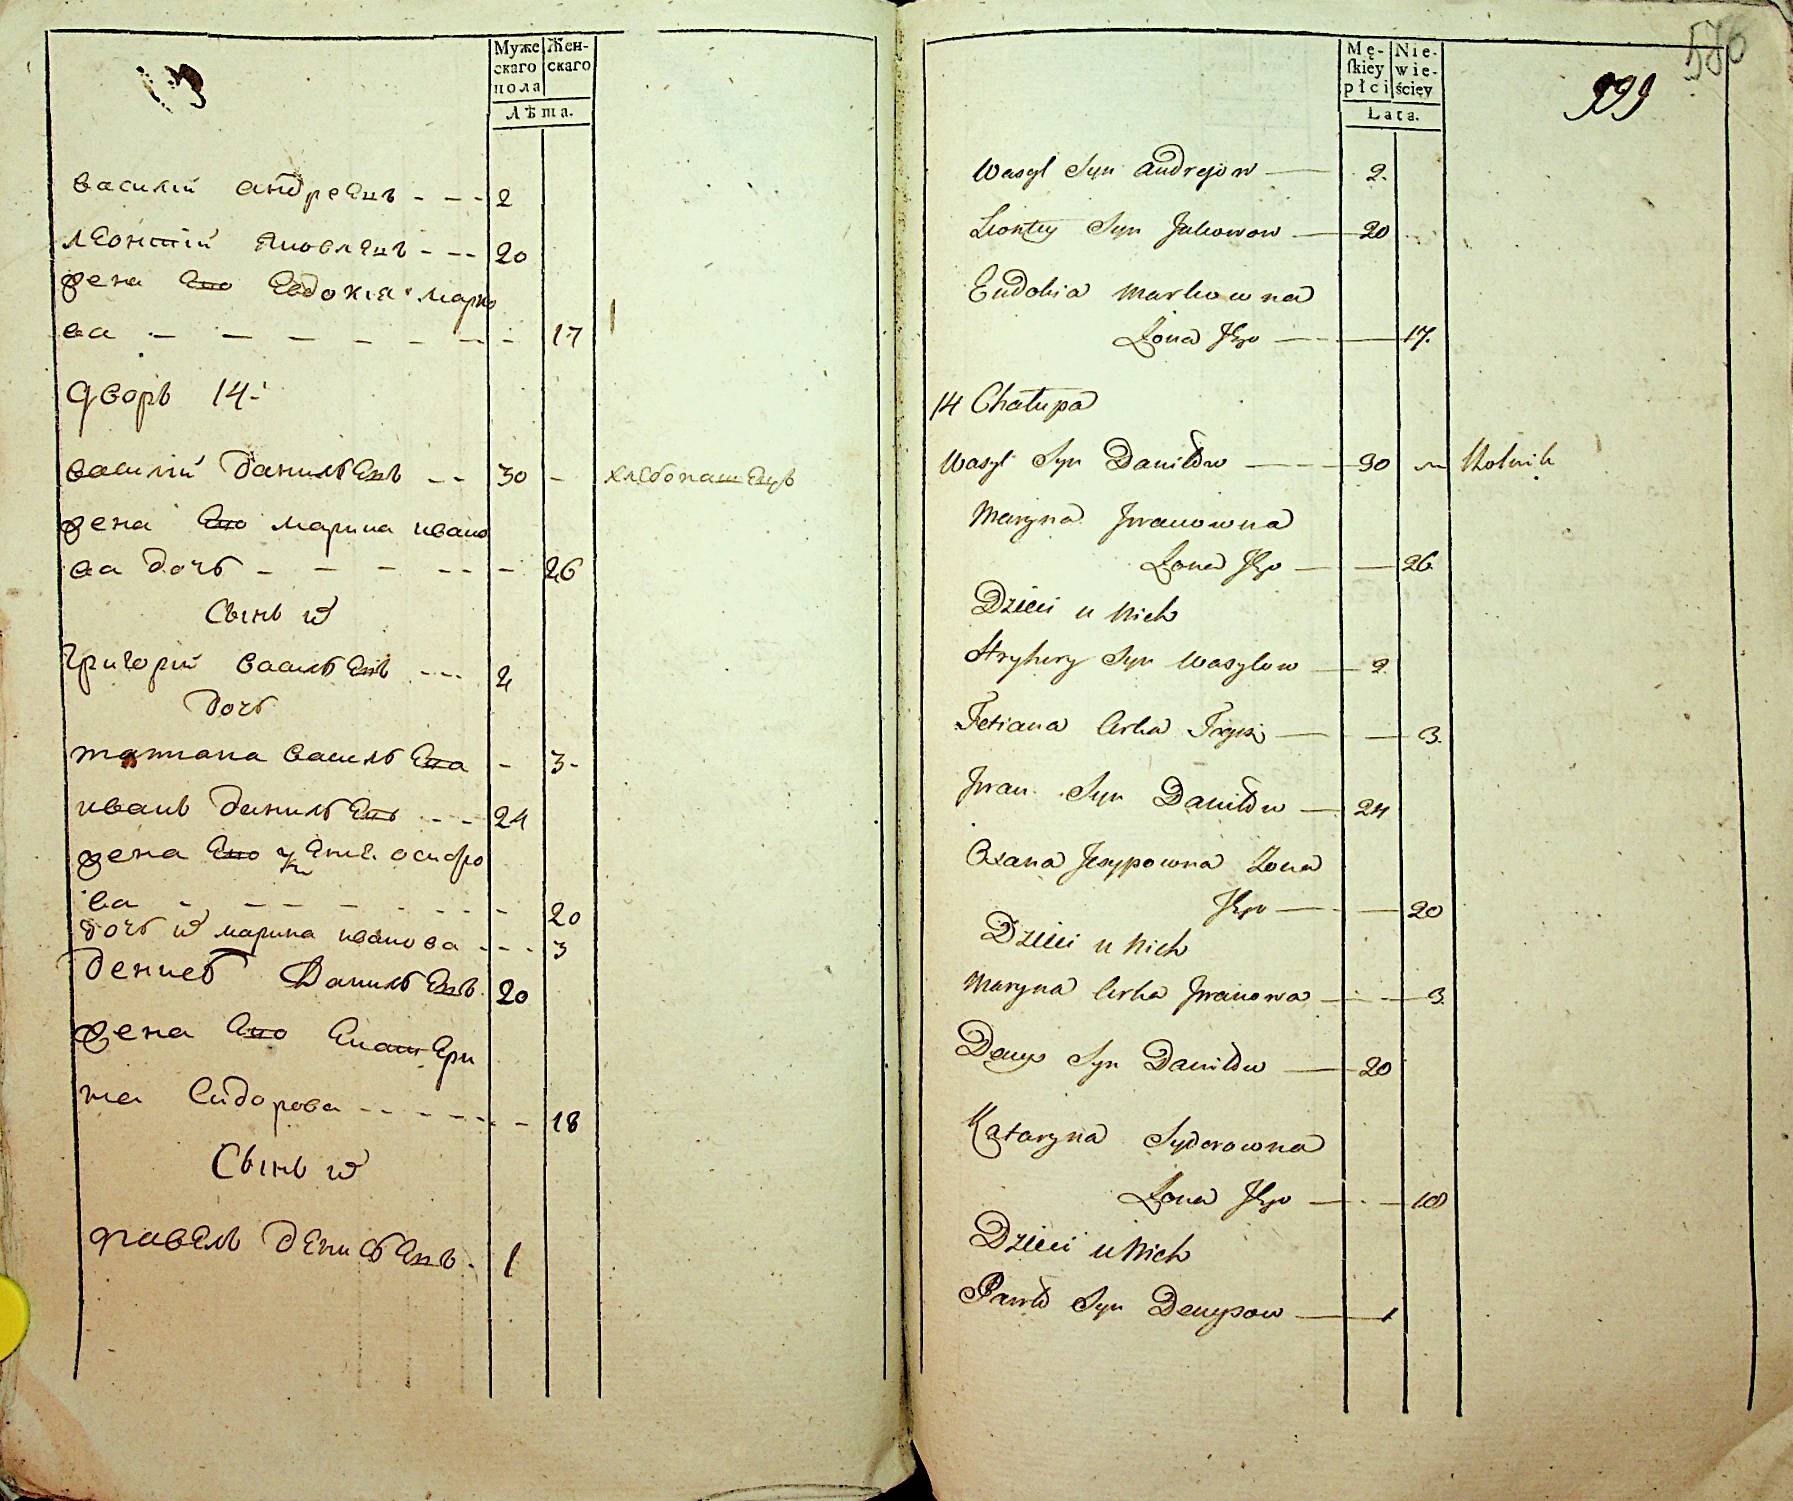 13
Муже
скаго
пола
Жен-
скаго
Лѣта.
василий андреевъ - - - 2
леонтий яковлевъ - - - 20
жена ево евдокия марко
ва - - - - - - - 17
дворъ 14
василий данильевъ - - 30 - хлебопашецъ
жена ево марина ивано
ва дочь - - - - - - 26
сынъ их
григорий васильевъ - - - 2
дочь
татиана васильева - 3-
иванъ данильевъ - - - 24
жена ево осифо
ва - - - - - - - 20
дочь их марина иванова - - - 3
денисъ данильевъ 20
жена ево екатери
на сидорова - - - - - - 18
сынъ их
павелъ денисьевъ - 1
Mę-
skiey
płci
Nie-
wie-
ściey
Lata.
586
999
Wasyl Syn Andrejow — 2.
Liontiy Syn Jakowow — 20
Eudokia Markowna
Żona Jego — 17.
14 Chałupa
Wasyl Syn Daniłow — 30 Rolnik
Maryna Jwanowna
Żona Jego — 26
Dzieci u Nich
Hryhory Syn Wasylow — 2
Tetiana Curka — 3.
Jwan Syn Daniłow — 24
Oxana Jesypowna Żona
Jego — 20
Dzieci u Nich
Maryna Curka Jwanowa — 3.
Denys Syn Daniłow — 20
Kataryna Sydorowna
Żona Jego — 18
Dzieci u Nich
Pawło Syn Denysow — 1